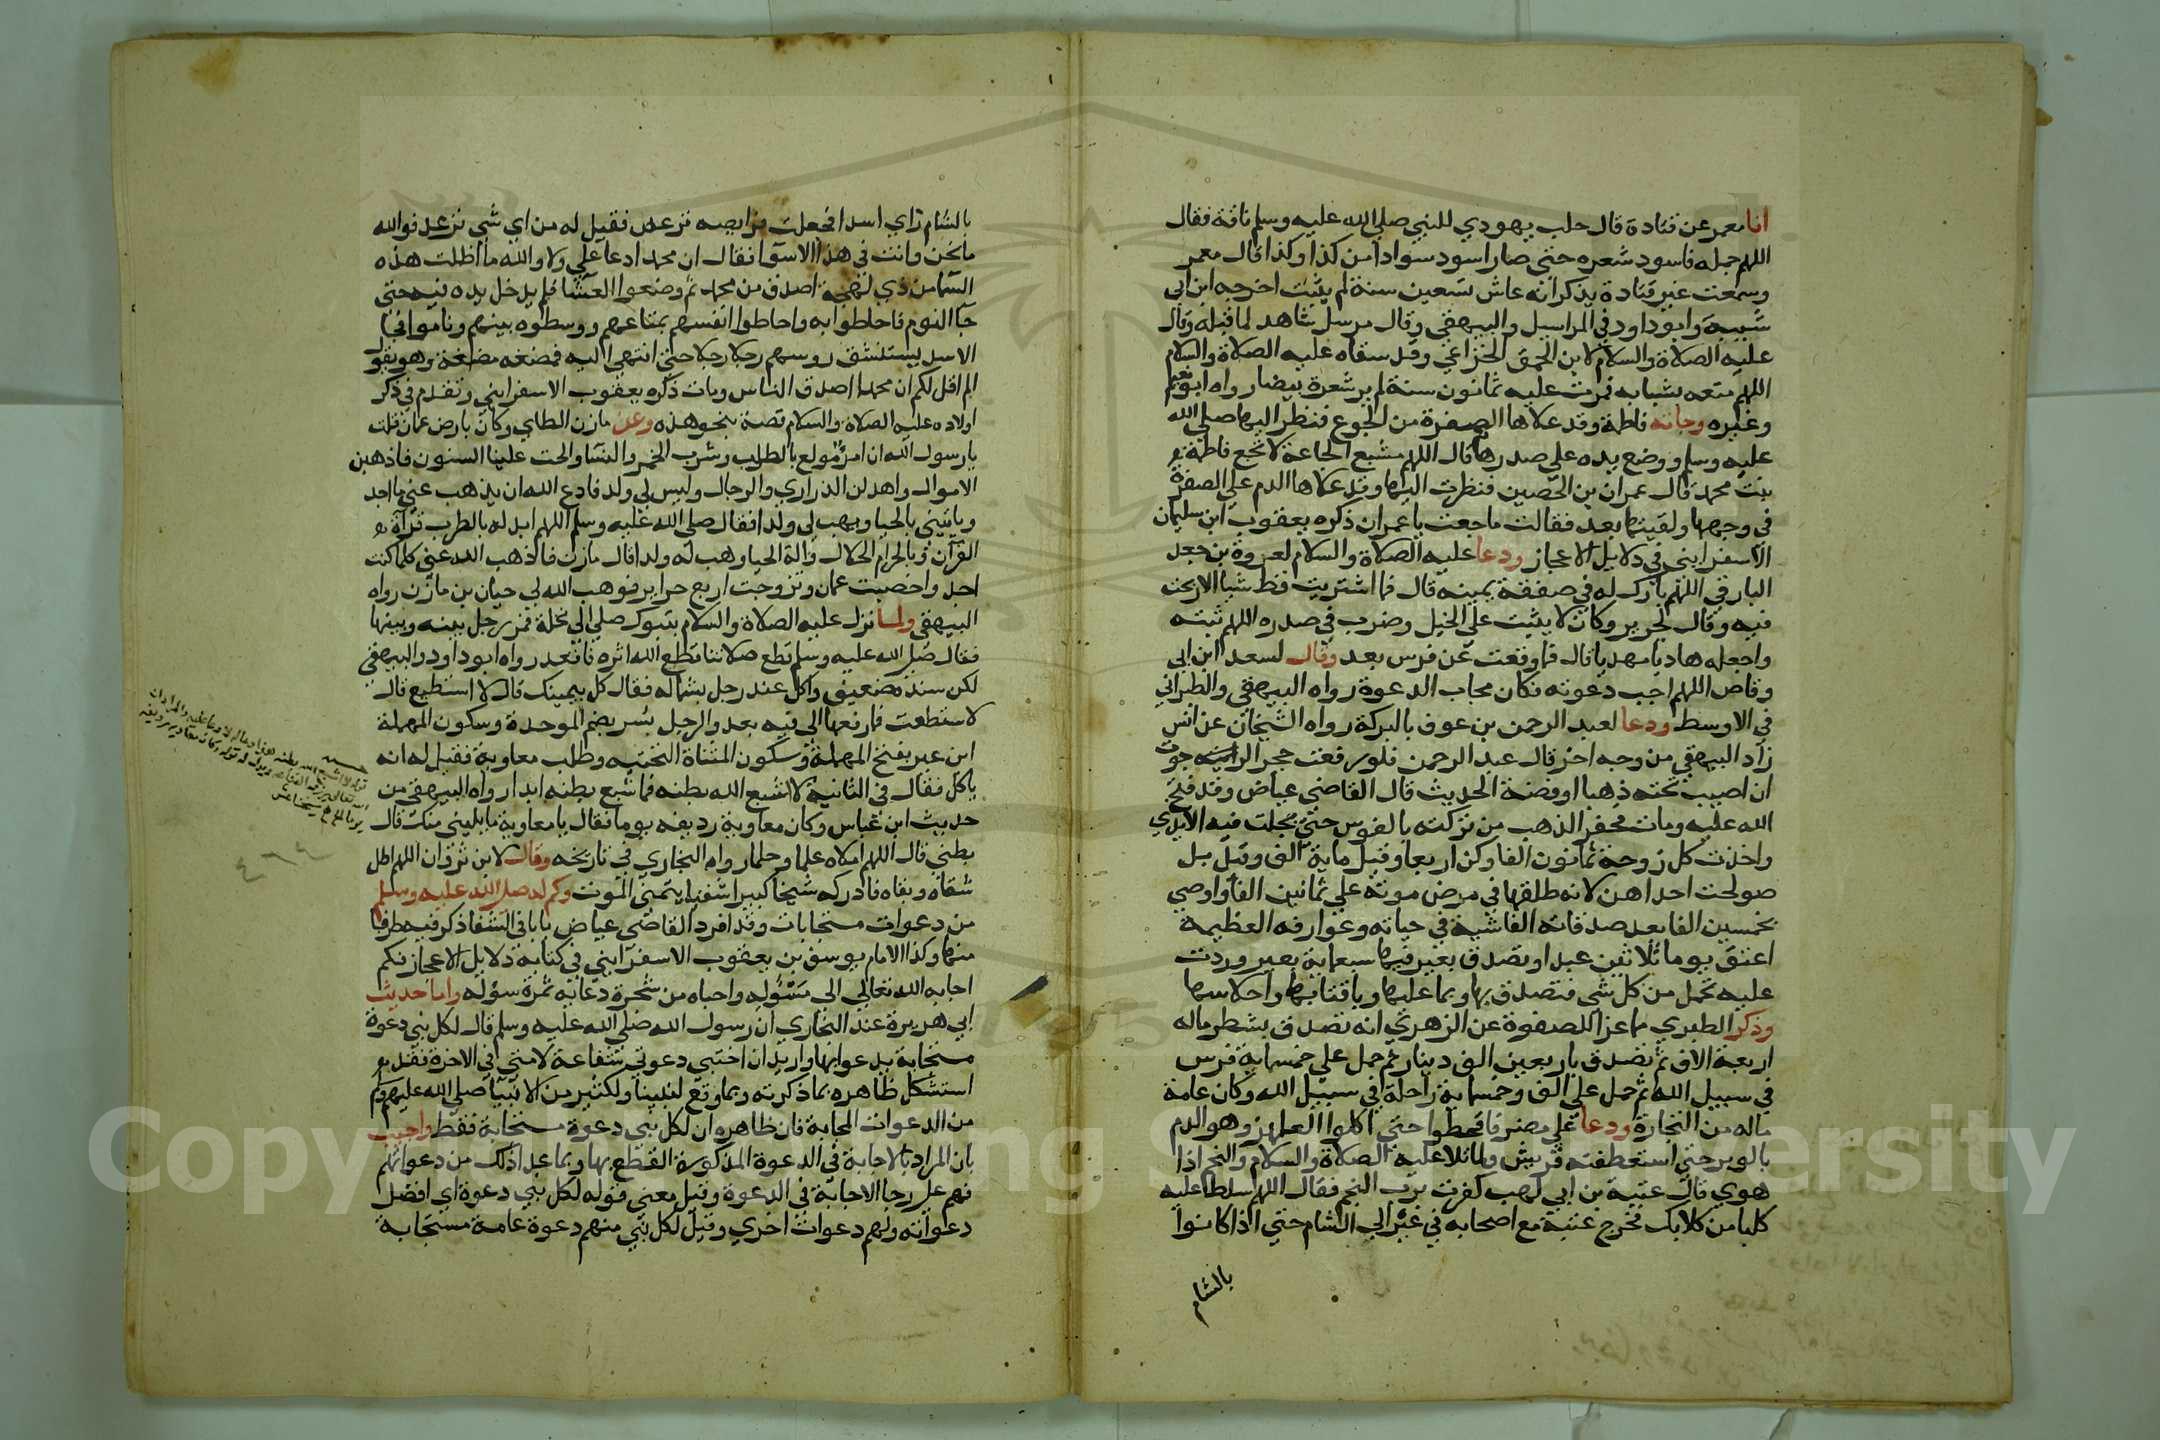 انا معمر عن قتادة قال حلب يهودي للنبي صلي الله عليه وسلم ناقة فقال
اللهم جمله فاسود شعره حتي صار اسود سوادا من كذا وكذا قال معمر
وسمعت غير قتادة يذكر انه عاش تسعين سنة لم يثبت اخرجه ابن ابي
شيبة وابو داود في المراسيل والبيهقي وقال مرسل شاهد لما قبله وقال
عليه الصلاة والسلام لابن الحمق الخزاعي وقد سقاه عليه الصلاة والسلام
اللهم متعه بشبابه فمرت عليه ثمانون سنة لم ير شعرة بيضا رواه ابو نعيم
وغيره وجاته فاطمة وقد علاها الصفرة من الجوع فنظر اليها صلي الله
عليه وسلم ووضع يده علي صدرها ثم قال اللهم مشبع الجاعة لا تجع فاطمة
بنت محمد قال عمران بن الحصين فنظرت اليها وقد علاها الدم علي الصفرة
في وجهها ولقيتها بعد فقالت ما جعت يا عمران ذكره يعقوب ابن سليمان
الاسفرايني في دلايل الاعجاز ودعا عليه الصلاة والسلام لعروة بن جعد
البارقي اللهم بارك له في صفقة يمينه قال فما اشتريت قط شيا الا ربحت
فيه وقال لجرير وكان لا يثبت علي الخيل وضرب في صدره اللهم ثبته
واجعله هاديا مهديا قال فما وقعت عن فرس بعد وقال لسعد ابن ابي
وقاص اللهم اجب دعوته فكان مجاب الدعوة رواه البيهقي والطبراني
في الاوسط ودعا لعبد الرحمن بن عوف بالبركة رواه الشيخان عن انس
زاد البيهقي من وجه اخر قال عبد الرحمن فلو رفعت حجرا لرجوت
ان اصيب تحته ذهبا او فضة الحديث قال القاضي عياض وقد فتح
الله عليه ومات فحفر الذهب من تركته بالفوس حتي مجلت فيه الايدي
واخذت كل زوجة ثمانون الفا وكن اربعا وقيل ماية الف وقيل بل
صولحت احداهن لانه طلقها في مرض موته علي ثمانين الفا واوصي
بخمسين الفا بعد صدقاته الفاشية في حياته وعوارفه العظيمة
اعتق يوما ثلاثين عبدا وتصدق بعير فيها سبعماية بعير وردت
عليه تحمل من كل شي فتصدق بها وبما عليها وباقتابها واحلاسها
وذكر الطبري مما عزا للصفوة عن الزهري انه تصدق بشطر ماله
اربعة الاف ثم تصدق باربعين الف دينار ثم حمل علي خمسماية فرس
في سبيل الله ثم حمل علي الف وخمسماية راحلة في سبيل الله وكان عامة
ماله من التجارة ودعا علي مضر فاقحطوا حتي اكلوا العلهز وهو الدم
بالوبر حتي استعطفته قريش ولما تلا عليه الصلاة والسلام والنجم اذا
هوي قال عتيبة بن ابي لهب كفرت برب النجم فقال اللهم سلط عليه
كلبا من كلابك فخرج عتبة مع اصحابه في عير الي الشام حتي اذا كانوا
بالشام
بالشام زاي اسد افجعلت فرايصه ترعد فقيل له من اي شي ترعد فوالله
ما نحن وانت في هذا الاسوا فقال ان محمد ادعا علي ولا والله ما اظلت هذه
السما من ذي لهجة اصدق من محمد ثم وضعوا العشا فلم يدخل يده فيه حتي
جا النوم فاحاطوا به واحاطوا انفسهم بمتاعهم ووسطوه بينهم وناموا فجا
الاسد يستنشق روسهم رجلا رجلا حتي انتهي اليه فمضغه مضغة وهو يقو
الم اقل لكم ان محمدا اصدق الناس ومات ذكره يعقوب الاسفرايني وتقدم في ذكر
اولاده عليه الصلاة والسلام قصة بنحو هذه وعن مازن الطاي وكان بارض عمان قلت
يا رسول الله ان امرؤ مولع بالطرب وشرب الخمر والنسا والحت علينا السنون فاذهبن
الاموال واهدلن الذراري والرجال وليس لي ولد فادع الله ان يذهب عني ما اجد
وياتيني بالحيا ويهب لي ولدا فقال صلي الله عليه وسلم اللهم ابدله بالطرب قراة
القران وبالحرام الحلال واته الحيا وهب له ولدا قال مازن فاذهب الله عني كلما كنت
اجد واخصبت عمان وتزوجت اربع حراير فوهب الله لي حيان بن مازن رواه
البيهقي ولما نزل عليه الصلاة والسلام بتبوك صلي الي نخلة فمر رجل بينه وبينها
فقال صلي الله عليه وسلم قطع صلاتنا قطع الله اثره فاقعد رواه ابو داود والبيهقي
لكن سنده ضعيف واكل عند رجل بشماله فقال كل بيمينك قال لا استطيع قال
لا استطعت فما رفعها الي فيه بعد والرجل بسر بضم الموحدة وسكون المهملة
ابن عير بفتح المهملة وسكون المثناة التحتيه وطلب معاوية فقيل له انه
ياكل فقال في الثانية لا اشبع الله بطنه فما شبع بطنه ابدا رواه البيهقي من
حديث ابن عباس وكان معاوية رديفه يوما فقال يا معاوية ما يليني منك قال
بطني قال اللهم املاه علما وحلما رواه البخاري في تاريخه وقال لابن ثروان اللهم اطل
شقاه وبقاه فادركه شيخا كبيرا شقيا يتمني الموت وكم له صلي الله عليه وسلم
من دعوات مستجابات وقد افرد القاضي عياض بابا في الشفا ذكر فيه طرفا
منها وكذا الامام يوسف بن يعقوب الاسفرايني في كتابه دلايل الاعجاز فكم
اجابه الله تعالي الي مسؤله واجباه من شجرة دعايه ثمرة سؤله واما حديث
ابي هريرة عند البخاري ان رسول الله صلي الله عليه وسلم قال لكل نبي دعوة
مستجابة يدعو بها واريد ان اختبي دعوتي شفاعة لامتي في الاخرة فقد
استشكل ظاهره بما ذكرته وبما وقع لنبينا ولكثير من الانبيا صلي الله عليهم
من الدعوات المجابة فان ظاهره ان لكل نبي دعوة مستجابة فقط واجيب
بان المراد بالاجابة في الدعوة المذكورة القطع بها وما عدا ذلك من دعواتهم
فهم علي رجا الاجابة في الدعوة وقيل معني قوله لكل نبي دعوة اي افضل
دعواته ولهم دعوات اخري وقيل لكل نبي منهم دعوة عامة مستجابة
Copy ng S ersity